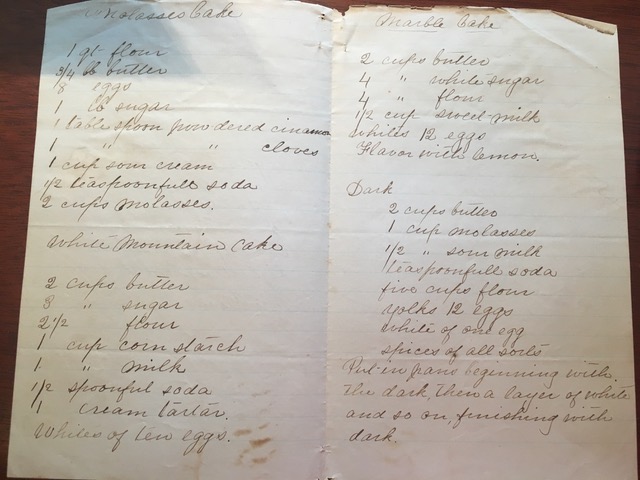 Molasses Cake
1 qt flour
3/4 lb butter
8 eggs
1 lb sugar
1 tablespoon powdered cinamon
1 " " cloves
1 cup sour cream
1/2 teaspoonfull soda
2 cups molasses.
White Mountain Cake
2 cups butter
3 " sugar
2 1/2 flour
1 cup corn starch
1 " milk
1/2 spoonful soda
1 cream tartar.
Whites of ten eggs.
Marble Cake
2 cups butter
4 " white sugar
4 " flour
1/2 cup sweet milk
Whites 12 eggs
Flavor with lemon.
Dark
2 cups butter
1 cup molasses
1/2 " sour milk
teaspoonfull soda
five cups flour
yolks 12 eggs
white of one egg
spices of all sorts
Put in pans beginning with
the dark, then a layer of white
and so on, finishing with
dark.